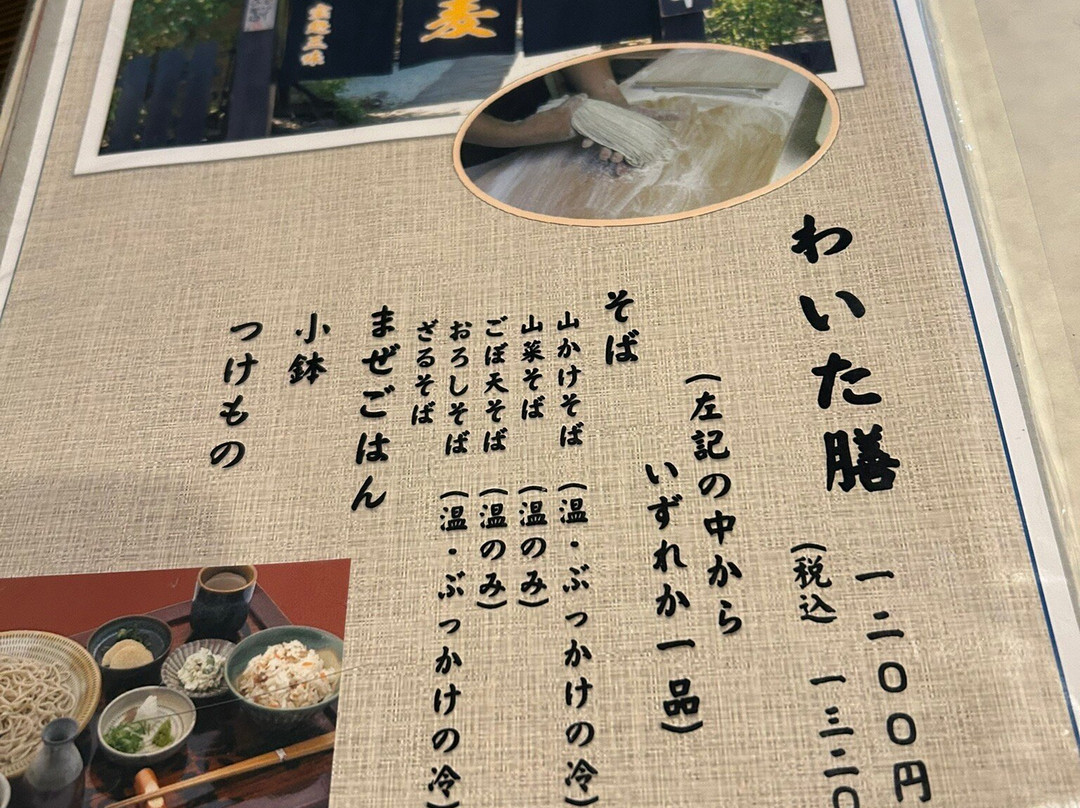 わいた膳
一二〇〇円
(税込 一三二〇
(左記の中から
いずれか一品)
そば
山かけそば (温・ぶっかけの冷)
山菜そば (温のみ)
ごぼ天そば (温のみ)
おろしそば (温・ぶっかけの冷)
ざるそば
まぜごはん
小鉢
つけもの